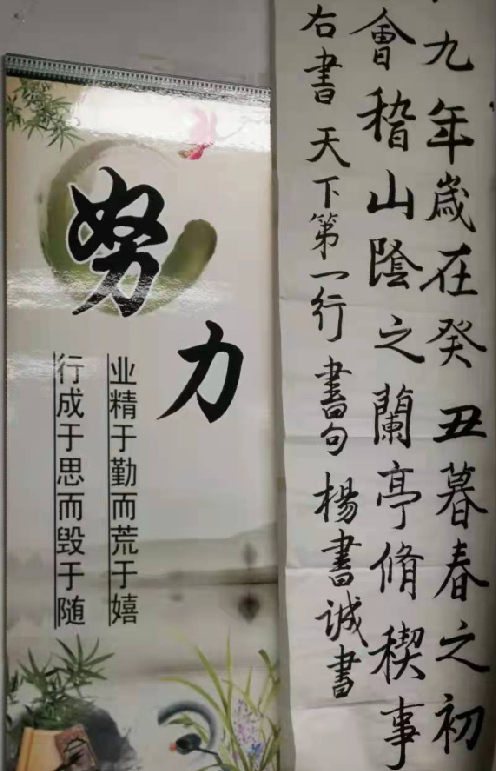 九年歲在癸丑暮春之初
會稽山陰之蘭亭脩稧事
右書天下第一行書句楊書誠書
努力
业精于勤而荒于嬉
行成于思而毁于随